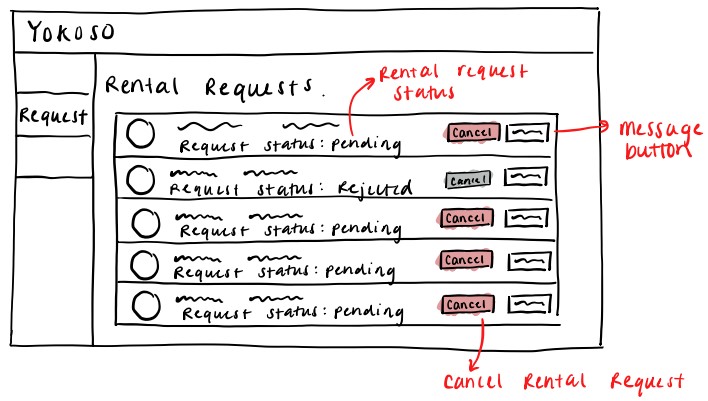 Yokoso
Rental Requests.
Rental request
status
Request
Cancel
Request status: pending
message
button
Cancel
Request status: Rejected
Cancel
Request status: pending
Cancel
Request status: pending
Cancel
Request status: pending
Cancel Rental Request